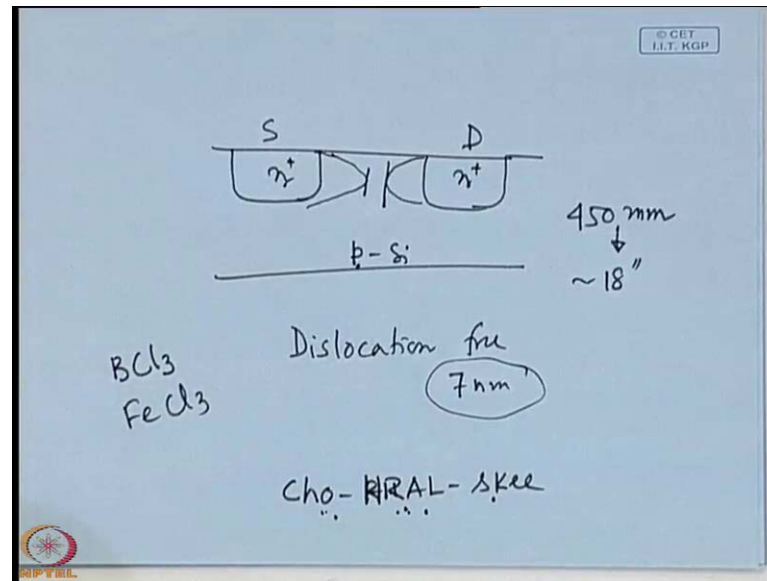 © CET
I.I.T. KGP
S D
n+ n+
450 mm
~ 18"
p - Si
Dislocation free
7 nm
BCl3
FeCl3
Cho - HRAL - skee
NPTEL